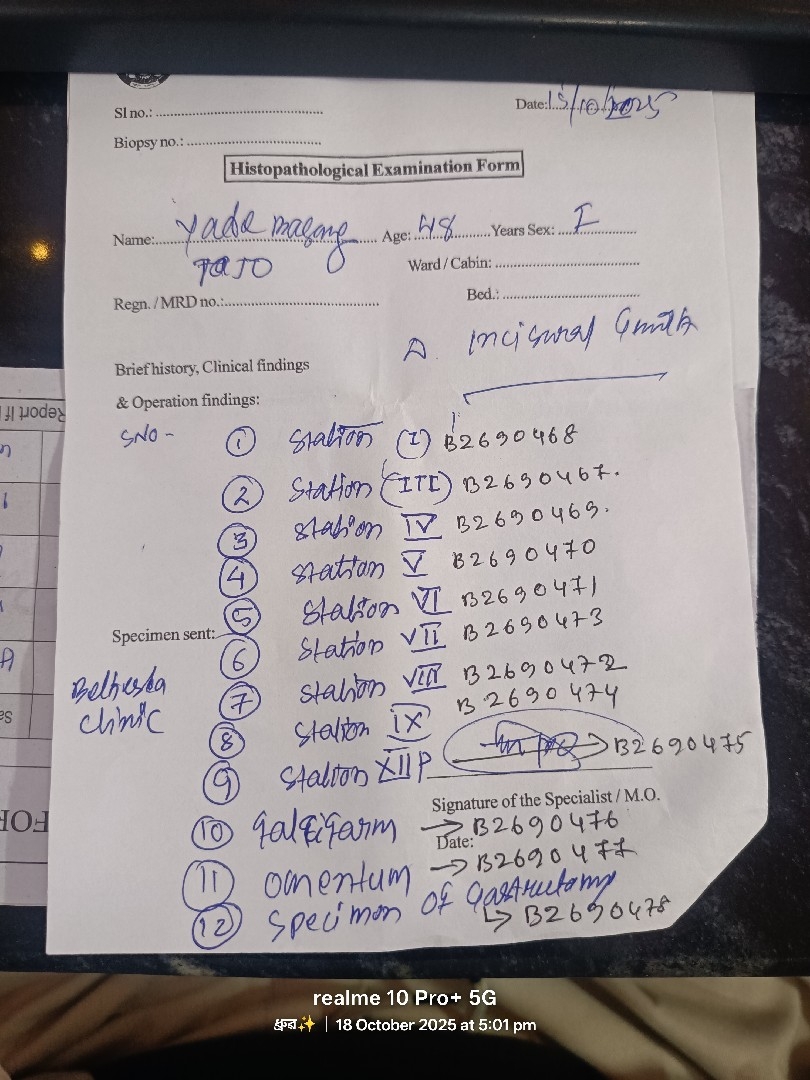 Sl no.: ....................
Date: 15/10/2025
Biopsy no.: ....................
Histopathological Examination Form
Name: Yade Magang Age: 48 Years Sex: F
TaJO
Ward / Cabin: ....................
Regn. / MRD no.: ....................
Bed.: ....................
Brief history, Clinical findings
& Operation findings:
SNO - ① Station (I) B2690468
② Station (III) B2690467.
③ Station IV B2690469.
④ Station V B2690470
⑤ Station VI B2690471
Specimen sent:
⑥ Station VII B2690473
⑦ Station VIII B2690472
Bethesda
clinic
⑧ Station IX B2690474
⑨ Station XIIP → B2690475
Signature of the Specialist / M.O.
⑩ → B2690476
Date:
⑪ Omentum → B2690477
⑫ Specimen of Gastrectomy
↳ B2690478
Report If
Sa
FOR
realme 10 Pro+ 5G
ध्रुब✨ | 18 October 2025 at 5:01 pm